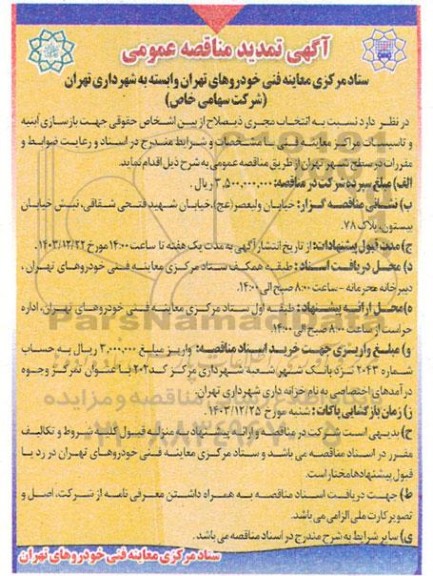 آگهی تمدید مناقصه عمومی
ستاد مرکزی معاینه فنی خودروهای تهران وابسته به شهرداری تهران
(شرکت سهامی خاص)
در نظر دارد نسبت به انتخاب مجری ذیصلاح از بین اشخاص حقوقی جهت بازسازی ابنیه
و تاسیسات مراکز معاینه فنی با مشخصات و شرایط مندرج در اسناد و رعایت ضوابط و
مقررات در سطح شهر تهران از طریق مناقصه عمومی به شرح ذیل اقدام نماید.
الف) مبلغ سپرده شرکت در مناقصه: ۳,۵۰۰,۰۰۰,۰۰۰ ریال.
ب) نشانی مناقصه گزار: خیابان ولیعصر(عج)، خیابان شهید فتحی شقاقی، نبش خیابان
بیستون، پلاک ۷۸.
ج) مدت قبول پیشنهادات: از تاریخ انتشار آگهی به مدت یک هفته تا ساعت ۱۴:۰۰ مورخ ۱۴۰۳/۱۲/۲۲.
د) محل دریافت اسناد: طبقه همکف ستاد مرکزی معاینه فنی خودروهای تهران،
دبیرخانه محرمانه - ساعت ۸:۰۰ صبح الی ۱۴:۰۰.
ه) محل ارائه پیشنهاد: طبقه اول ستاد مرکزی معاینه فنی خودروهای تهران، اداره
حراست از ساعت ۸:۰۰ صبح الی ۱۴:۰۰
و) مبلغ واریزی جهت خرید اسناد مناقصه: واریز مبلغ ۳,۰۰۰,۰۰۰ ریال به حساب
شماره ۲۰۴۳ نزد بانک شهر شعبه شهرداری مرکز کد ۲۰۲ با عنوان تمرکز وجوه
درآمدهای اختصاصی به نام خزانه داری شهرداری تهران.
ز) زمان بازگشایی پاکات: شنبه مورخ ۱۴۰۳/۱۲/۲۵.
ح) بدیهی است شرکت در مناقصه و ارائه پیشنهاد به منزله قبول کلیه شروط و تکالیف
مقرر در اسناد مناقصه می باشد و ستاد مرکزی معاینه فنی خودروهای تهران در رد یا
قبول پیشنهادها مختار است.
ط) جهت دریافت اسناد مناقصه به همراه داشتن معرفی نامه از شرکت، اصل و
تصویر کارت ملی الزامی می باشد.
ی) سایر شرایط به شرح مندرج در اسناد مناقصه می باشد.
ستاد مرکزی معاینه فنی خودروهای تهران